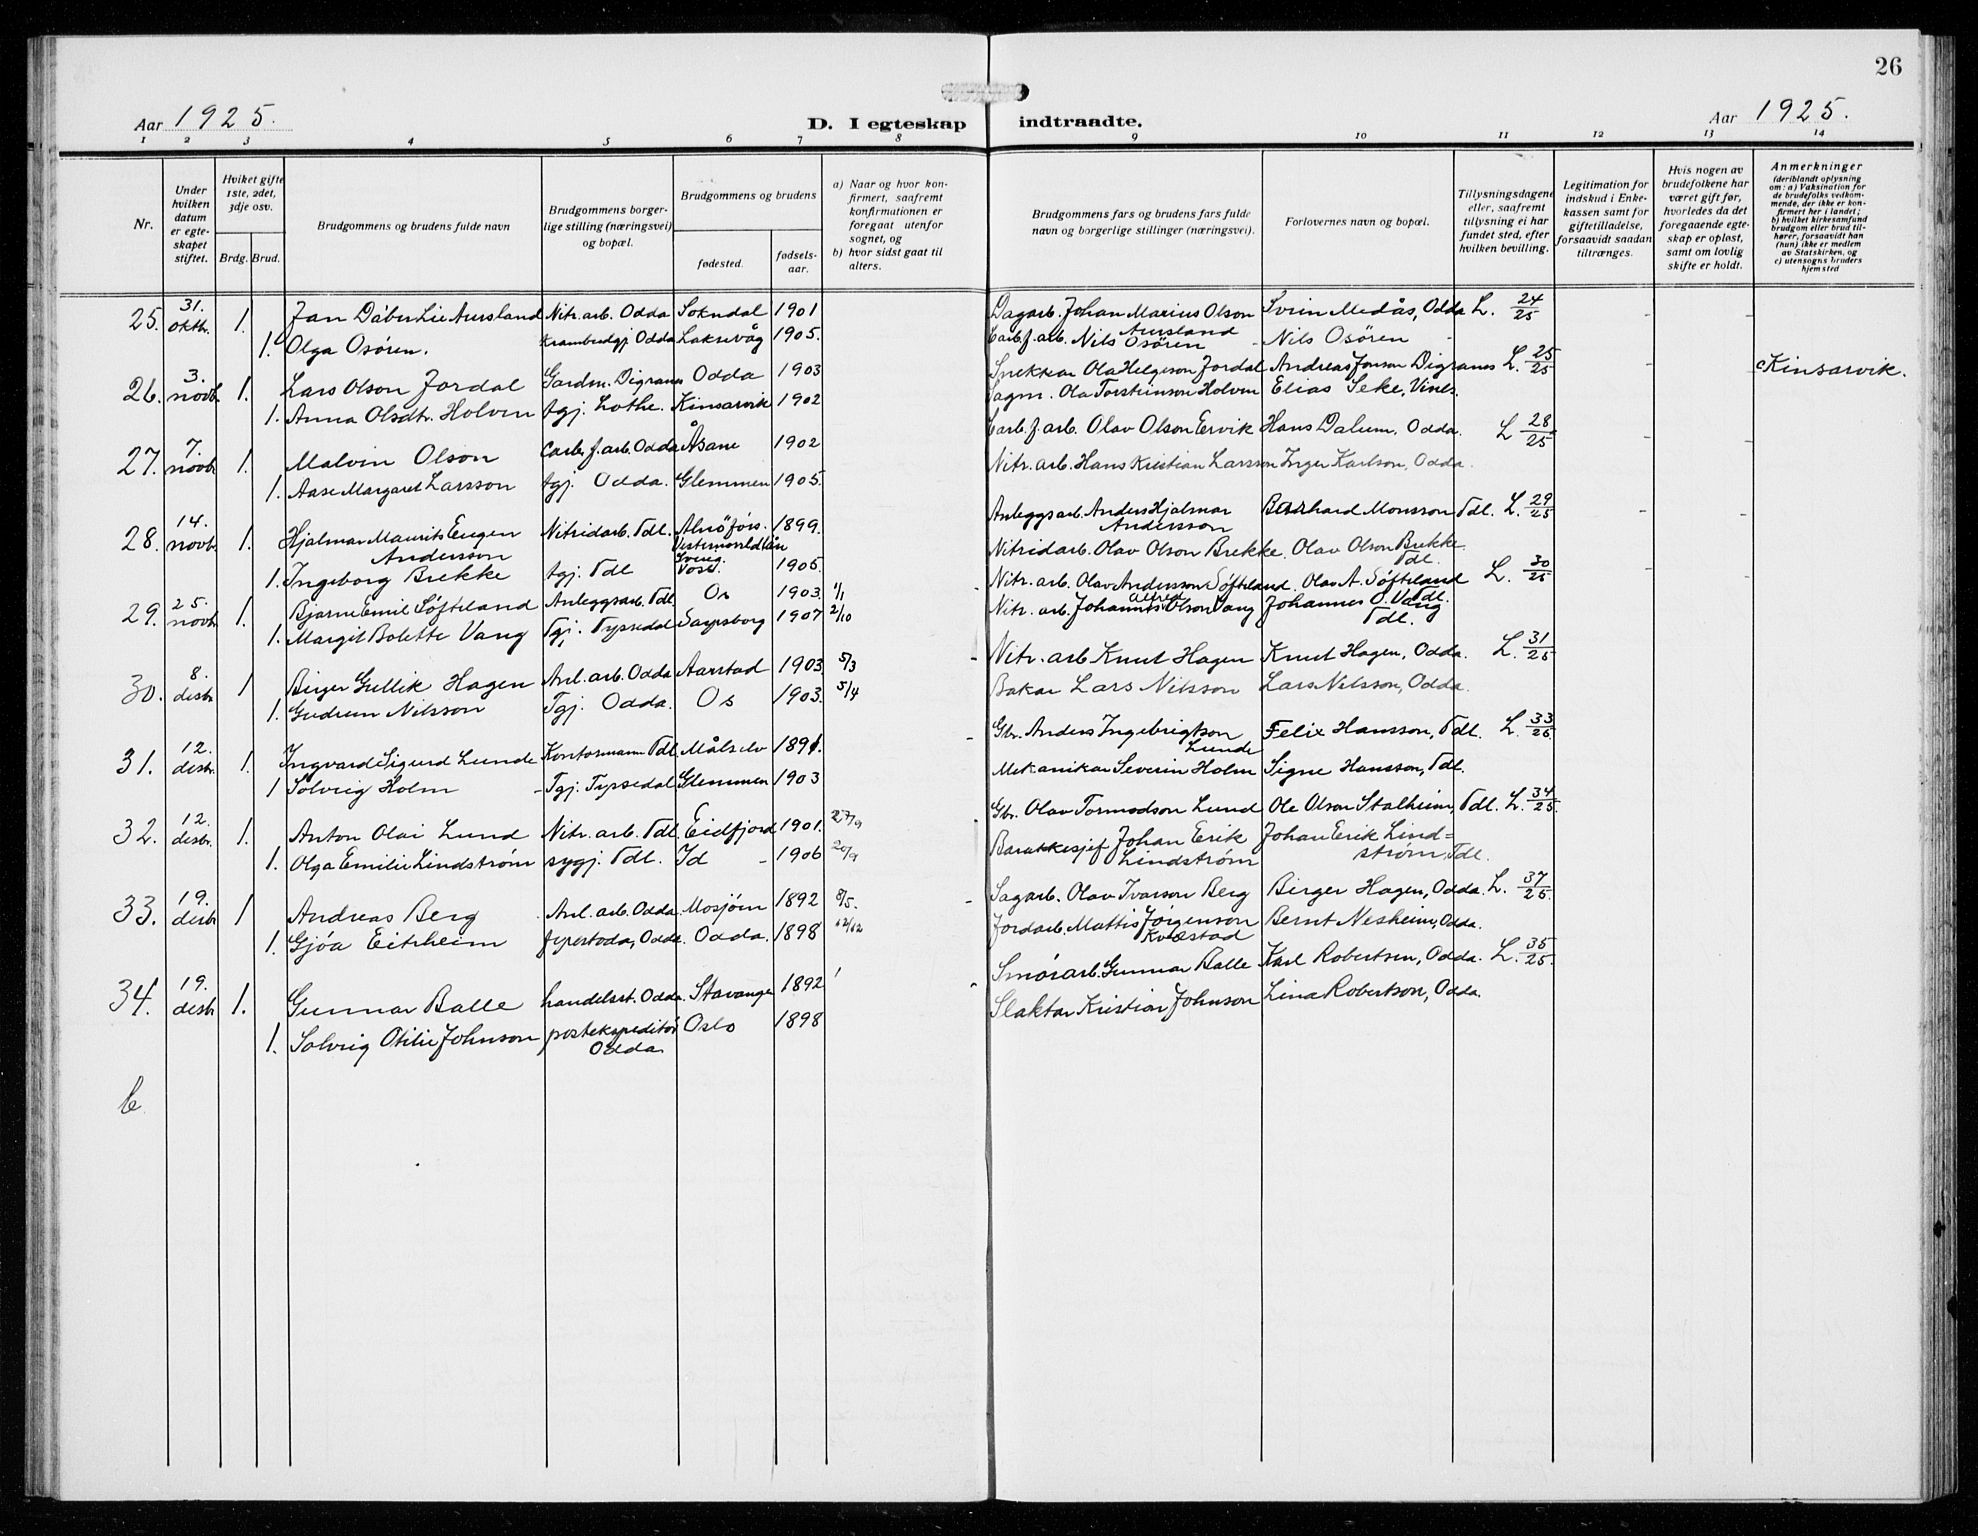 26
Aar 1925.
D. I egteskap indtraadte.
Aar 1925.
1 2 3 4 5 6 7 8 9 10 11 12 13 14
Nr.
Under hvilken datum er egte-skapet stiftet.
Hviket gifte 1ste, 2det, 3dje osv.
Brdg. Brud.
Brudgommens og brudens fulde navn
Brudgommens borger-lige stilling (næringsvei) og bopæl.
Brudgommens og brudens
fødested.
fødsels-aar.
a) Naar og hvor kon-firmert, saafremt konfirmationen er foregaat utenfor sognet, og
b) hvor sidst gaat til alters.
Brudgommens fars og brudens fars fulde navn og borgerlige stillinger (næringsvei).
Forlovernes navn og bopæl.
Tillysningsdagene eller, saafremt tillysning ei har fundet sted, efter hvilken bevilling.
Legitimation for indskud i Enke-kassen samt for giftetilladelse, forsaavidt saadan tiltrænges.
Hvis nogen av brudefolkene har været gift før, hvorledes da det foregaaende egte-skap er opløst, samt om lovlig skifte er holdt.
Anmerkninger (deriblandt oplysning om: a) Vaksination for de brudefolks vedkom-mende, der ikke er kon-firmert her i landet; b) hvilket kirkesamfund brudgom eller brud til-hører, forsaavidt han (hun) ikke er medlem av Statskirken, og c) utensogns bruders hjemsted
25. 31. oktbr. 1. Jan Dåber Lie Aursland Nitr. arb. Odda Sokndal 1901 Dagarb. Johan Marius Olson Aursland Svein Medås, Odda L. 24/25
1. Olga Osören. Krambudgj. Odda Laksevåg 1905. Carb. f. arb. Nils Osören - Nils Osören -
26. 3. novb. 1. Lars Olson Jordal Gardm. Digranes Odda 1903 Snekkar Ola Helgeson Jordal Andreas Jonson Digranes L. 25/25 c Kinsarvik.
1. Anna Olsdtr. Holven tgj. Lothe. Kinsarvik 1902 Sagm. Ola Torsteinson Holven Elias Seke, Vines.
27. 7. novb. 1. Malvin Olson Carb. f. arb. Odda Åsane 1902 Carb. f. arb. Olav Olson Ervik Hans Dalum, Odda. L 28/25
1. Aase Margaret Larsson tgj. Odda. Glemmen 1905. Nitr. arb. Hans Kristian Larsson Inger Karlson, Odda.
28. 14. novb. 1. Hjalmar Maurits Eugen Andersson Nitridarb. Tdl. Alnöfors. Vesternorrldlän 1899. Anleggsarb. Anders Hjalmar Andersson Bernhard Monsson Tdl. L. 29/25
1. Ingeborg Brekke tgj. Tdl Voss. 1905. Nitridarb. Olav Olson Brekke. Olav Olson Brekke. Tdl.
29. 25. novb. 1. Bjarne Emil Söfteland Anleggsarb. Tdl. Os 1903. 1/1 Nitr. arb. Olav Andersson Söfteland. Olav A. Söfteland Tdl. L. 30/25
1. Margit Bolette Vang Tgj. Tyssedal Sarpsborg 1907 2/10 Nitr. arb. Johannes Alfred Olson Vang Johannes O. Vang Tdl.
30. 8. desbr 1 Birger Gullik Hagen Anl. arb. Odda Aarstad 1903 5/3 Nitr. arb Knut Hagen Knut Hagen, Odda. L. 31/25
1. Gudrun Nilsson Tgj. Odda. Os 1903. 5/4 Bakar Lars Nilsson Lars Nilsson, Odda.
31. 12. desbr. 1. Ingvard Sigurd Lunde Kontormann Tdl. Målselv 1891. Gbr. Anders Ingebrigtson Lunde Felix Hansson, Tdl. L. 33/25
1 Solveig Holm - Tgj. Tyssedal Glemmen 1903 Mekanikar Severin Holm Signe Hansson, Tdl.
32. 12. desbr. 1. Anton Olai Lund Nitr. arb. Tdl. Eidfjord 1901. 27/9 Gbr. Olav Tormodson Lund Ole Olson Stalheim, Tdl. L. 34/25.
1. Olga Emilie Lindström sygj. Tdl. Id - 1906 20/9 Barakkesjef Johan Erik Lindström Johan Erik Lind=ström, Tdl.
33. 19. desbr 1 Andreas Berg Anl. arb. Odda. Mosjöen 1892 8/5. Sagarb. Olav Ivarson Berg Birger Hagen, Odda. L. 37/25.
1. Gjöa Eitrheim fyrstoda, Odda. Odda. 1898 Jordarb. Mattis Jörgenson Kvæstad Bernt Nesheim, Odda.
34. 19. desbr 1. Gunnar Balle handelsst. Odda. Stavanger 1892 Smörarb. Gunnar Balle Karl Robertsen, Odda. L. 35/25.
1. Solveig Otilie Johnson postekspeditör Odda. Oslo 1898 Slaktar Kristian Johnson Lina Robertson, Odda.